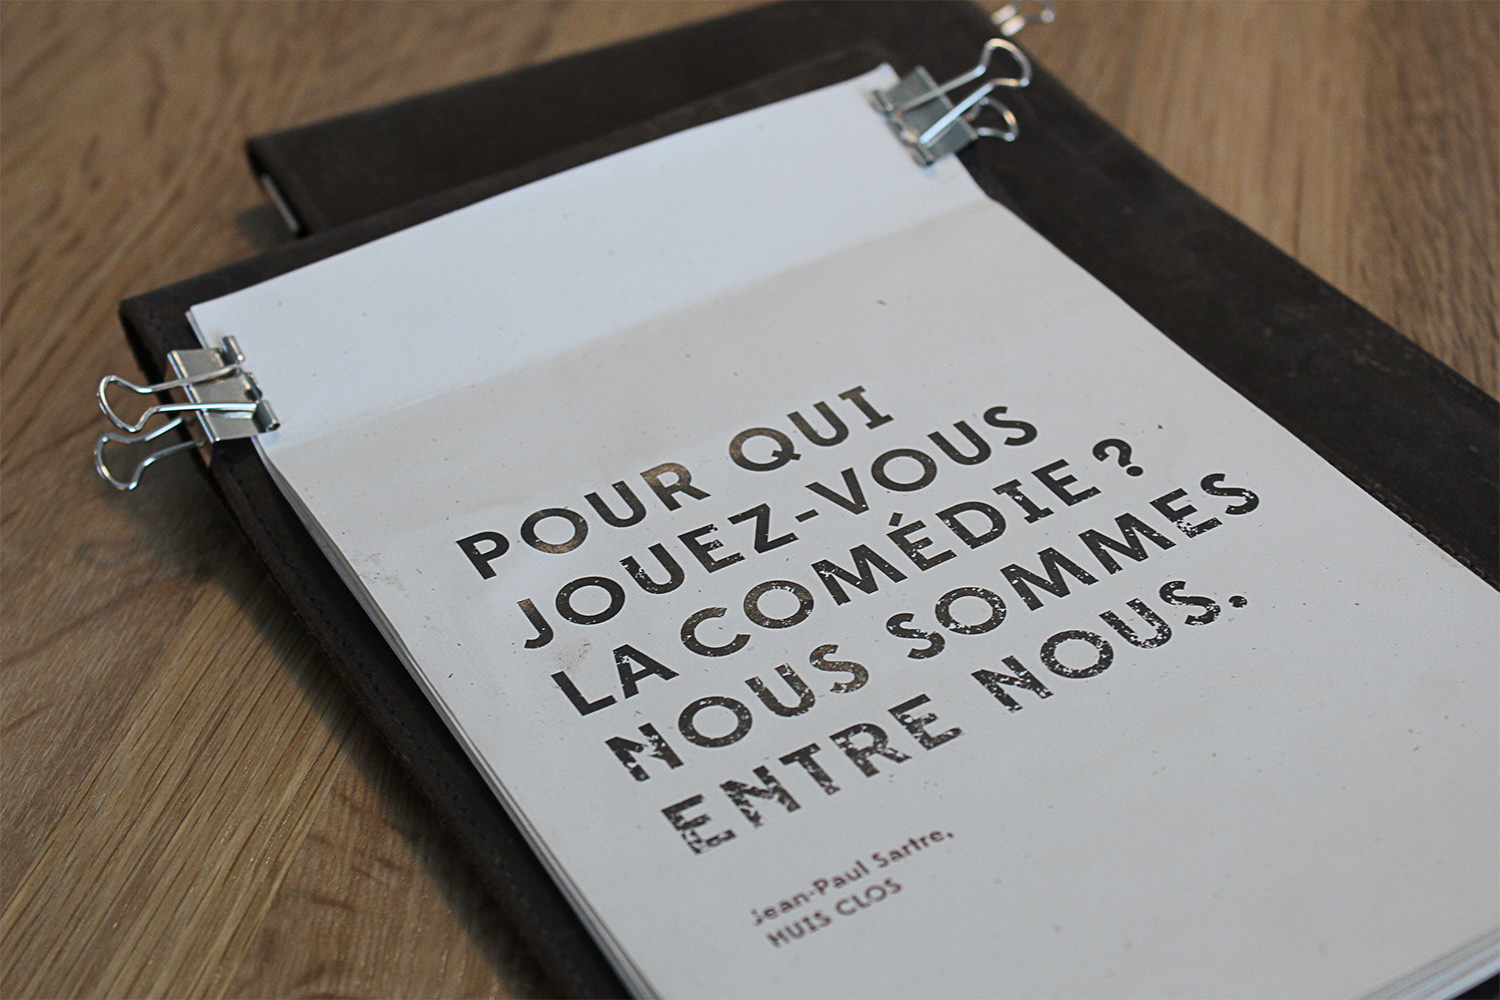 POUR QUI
JOUEZ-VOUS
LA COMÉDIE ?
NOUS SOMMES
ENTRE NOUS.
Jean-Paul Sartre,
HUIS CLOS